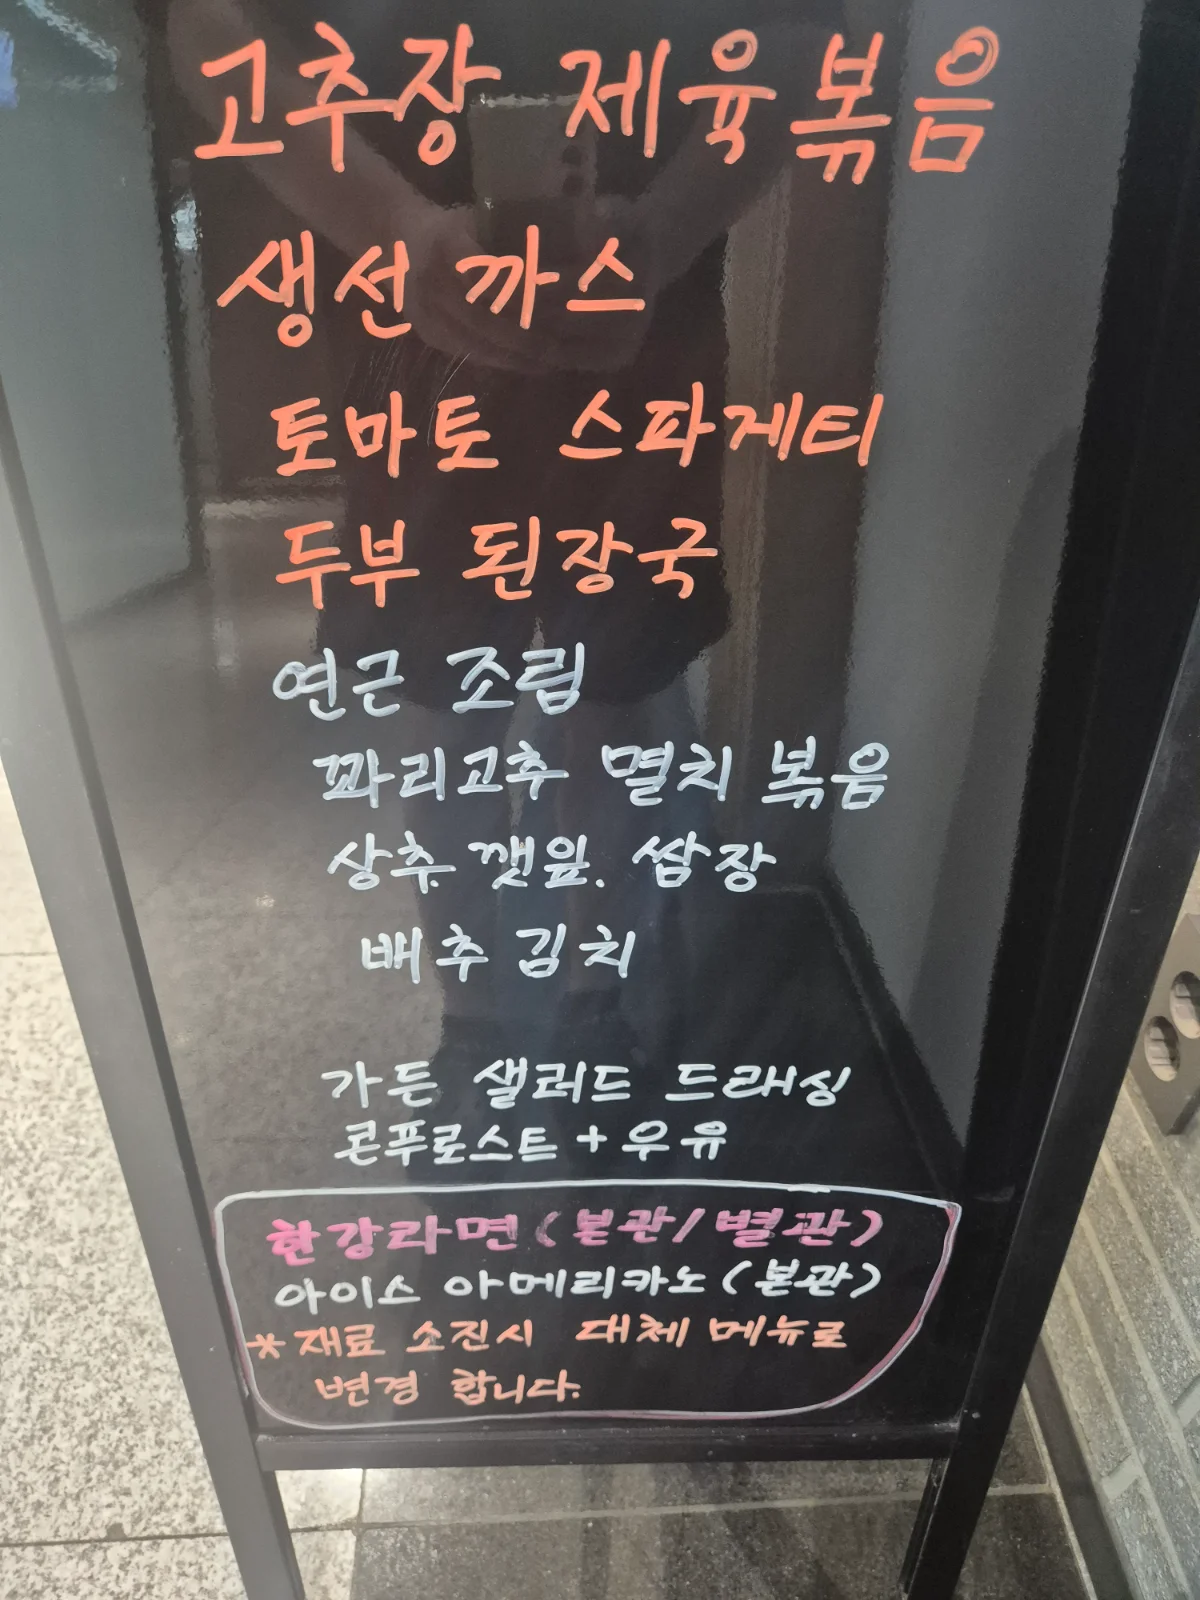 고추장 제육볶음
생선 까스
토마토 스파게티
두부 된장국
연근 조림
꽈리고추 멸치 볶음
상추. 깻잎. 쌈장
배추 김치
가든 샐러드 드래싱
콘푸로스트 + 우유
한강라면 (본관/별관)
아이스 아메리카노 (본관)
* 재료 소진시 대체 메뉴로
변경 합니다.